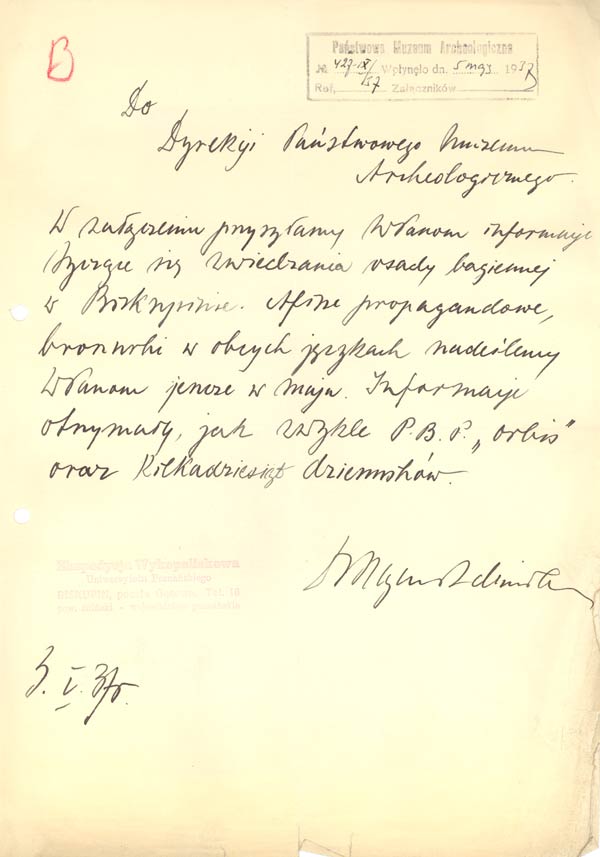 B
Państwowe Muzeum Archeologiczne
№ 427-IX/37 Wpłynęło dn. 5 maj 1937
Ref. Załączników
Do
Dyrekcji Państwowego Muzeum
Archeologicznego.
W załączeniu przysyłamy WPanom informacje
tyczące się zwiedzania osady bagiennej
w Biskupinie. Afisze propagandowe,
broszurki w obcych językach nadeślemy
WPanom jeszcze w maju. Informacje
otrzymały, jak zwykle P.B.P. „Orbis”
oraz kilkadziesiąt dzienników.
Ekspedycja Wykopaliskowa
Uniwersytetu Poznańskiego
BISKUPIN, poczta Gąsawa, Tel. 16
pow. żniński - województwo poznańskie
3. V. 37r.